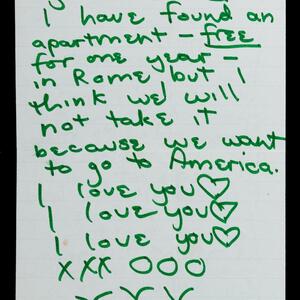 I have found an
apartment – free
for one year –
in Rome but I
think we will
not take it
because we want
to go to America.
I love you ♡
I love you ♡
I love you ♡
XXX OOO